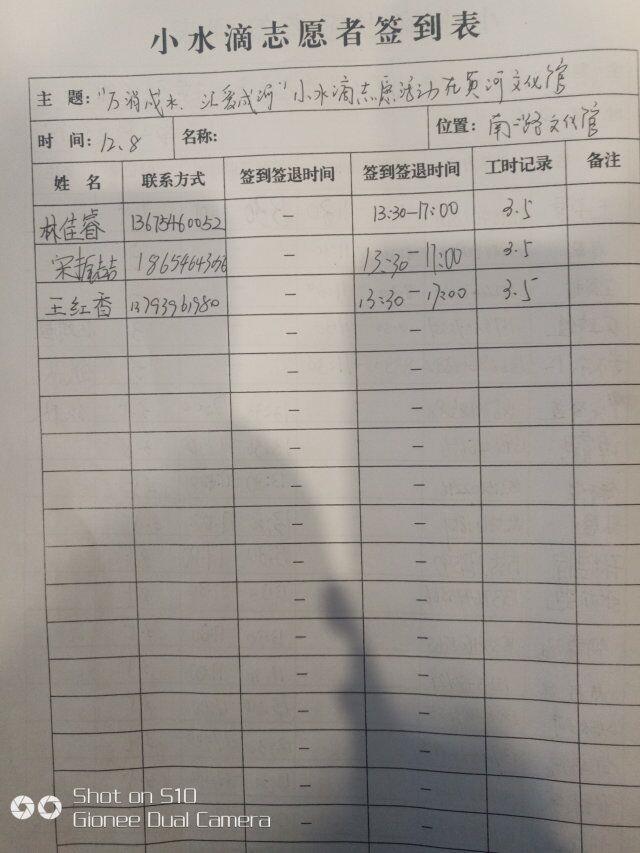 小水滴志愿者签到表
主 题: "万涓成水、汇爱成河"小水滴志愿活动在黄河文化馆
时 间: 12.8 名称: 位置: 南二路文化馆
姓 名 联系方式 签到签退时间 签到签退时间 工时记录 备注
林佳睿 13675460052 — 13:30—17:00 3.5
宋振喆 — 13:30—17:00 3.5
王红香 13793961980 — 13:30—17:00 3.5
— —
— —
— —
— —
— —
— —
— —
— —
— —
— —
— —
— —
— —
Shot on S10
Gionee Dual Camera